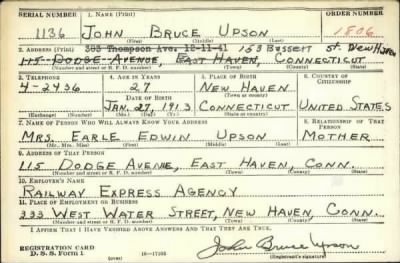 SERIAL NUMBER 1. NAME (Print) ORDER NUMBER
1136 JOHN BRUCE UPSON 1806
(First) (Middle) (Last)
2. ADDRESS (Print) 303 Thompson Ave. 12-11-41 153 Bassett St. New Haven
115 DODGE AVENUE, EAST HAVEN, CONNECTICUT
(Number and street or R. F. D. number) (Town) (County) (State)
3. TELEPHONE 4. AGE IN YEARS 5. PLACE OF BIRTH 6. COUNTRY OF CITIZENSHIP
4-2436 27 NEW HAVEN
DATE OF BIRTH (Town or county)
JAN. 27, 1913 CONNECTICUT UNITED STATES
(Exchange) (Number) (Mo.) (Day) (Yr.) (State or country)
7. NAME OF PERSON WHO WILL ALWAYS KNOW YOUR ADDRESS 8. RELATIONSHIP OF THAT PERSON
MRS. EARLE EDWIN UPSON MOTHER
(Mr., Mrs., Miss) (First) (Middle) (Last)
9. ADDRESS OF THAT PERSON
115 DODGE AVENUE, EAST HAVEN, CONN.
(Number and street or R. F. D. number) (Town) (County) (State)
10. EMPLOYER'S NAME
RAILWAY EXPRESS AGENCY
11. PLACE OF EMPLOYMENT OR BUSINESS
333 WEST WATER STREET, NEW HAVEN, CONN.
(Number and street or R. F. D. number) (Town) (County) (State)
I AFFIRM THAT I HAVE VERIFIED ABOVE ANSWERS AND THAT THEY ARE TRUE.
REGISTRATION CARD
D. S. S. FORM 1 (over) John Bruce Upson
(Registrant's signature)